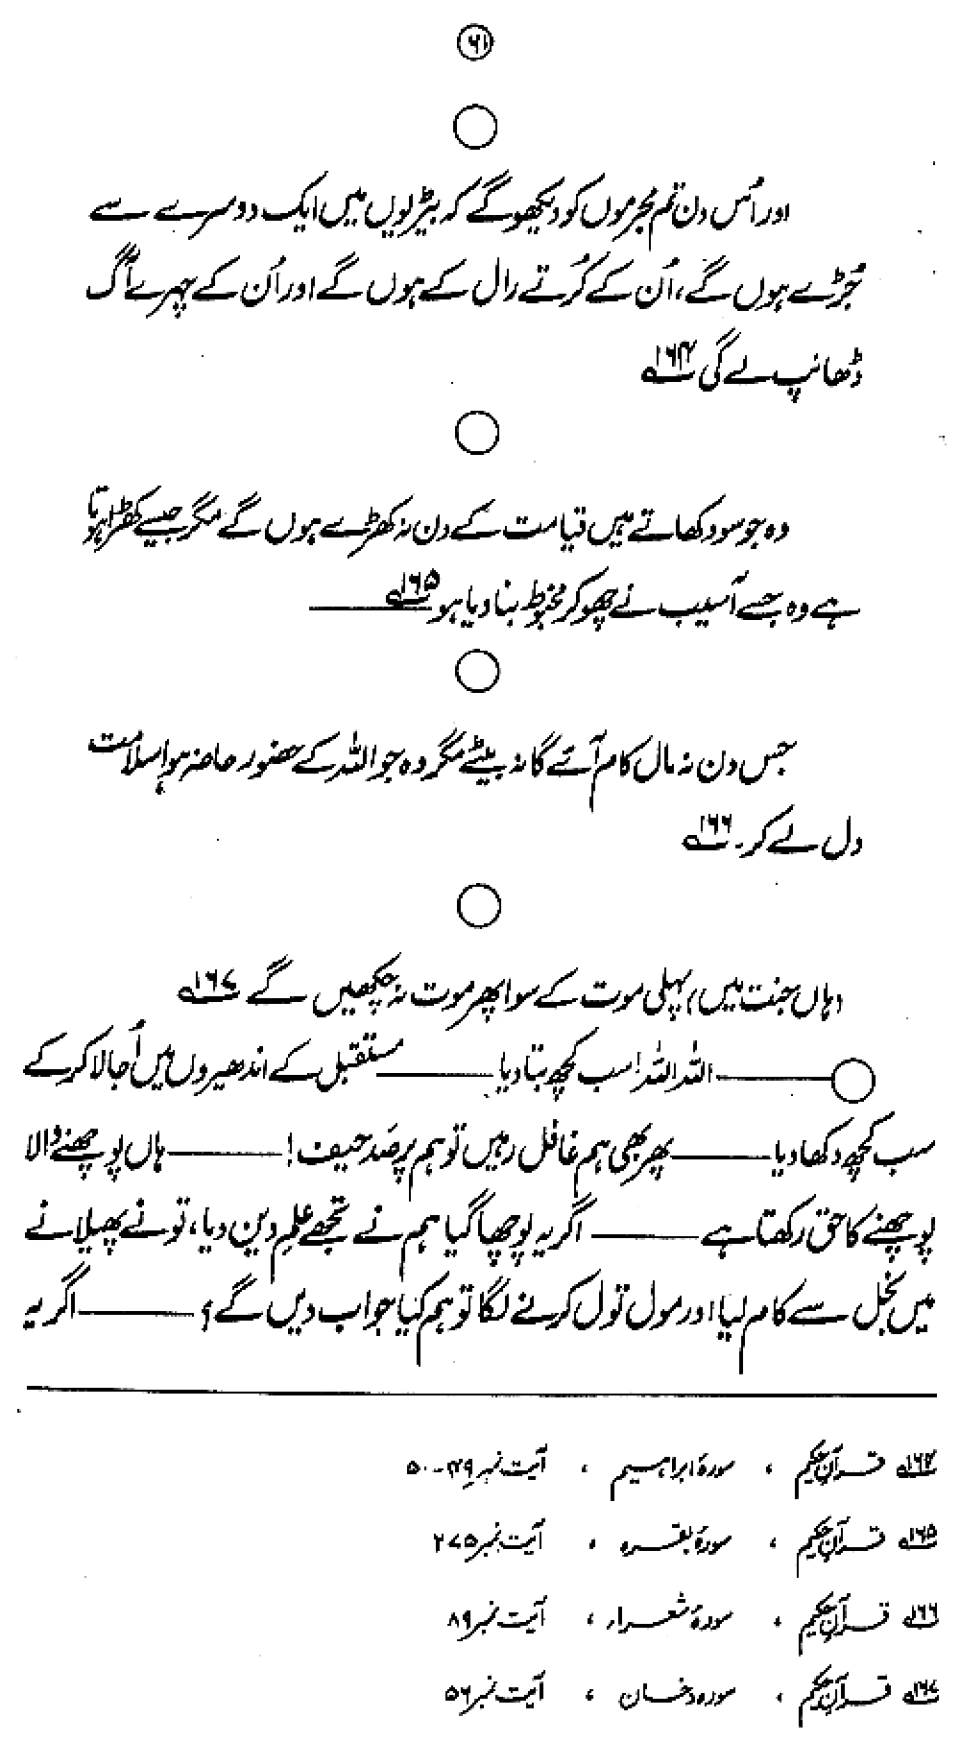 ۶۱
اور اُس دن تم مجرموں کو دیکھو گے کہ بیڑیوں میں ایک دوسرے سے
جُڑے ہوں گے، اُن کے کُرتے رال کے ہوں گے اور اُن کے چہرے آگ
ڈھانپ لے گی ۱۶۴؎
وہ جو سود کھاتے ہیں قیامت کے دن نہ کھڑے ہوں گے مگر جیسے کھڑا ہوتا
ہے وہ جسے آسیب نے چھو کر مخبوط بنا دیا ہو ۱۶۵؎ ———
جس دن نہ مال کام آئے گا نہ بیٹے مگر وہ جو اللہ کے حضور حاضر ہوا سلامت
دل لے کر۔ ۱۶۶؎
(وہاں جنت میں) پہلی موت کے سوا پھر موت نہ چکھیں گے ۱۶۷؎
——— اللہ اللہ! سب کچھ بتا دیا ——— مستقبل کے اندھیروں میں اُجالا کر کے
سب کچھ دکھا دیا ——— پھر بھی ہم غافل رہیں تو ہم پر صَد حیف! ——— ہاں پوچھنے والا
پوچھنے کا حق رکھتا ہے ——— اگر یہ پوچھا گیا ہم نے تجھے علمِ دین دیا، تو نے پھیلانے
میں بخل سے کام لیا اور مول تول کرنے لگا تو ہم کیا جواب دیں گے؟ ——— اگر یہ
۱۶۴؎ قرآن حکیم ، سورۂ ابراہیم ، آیت نمبر ۴۹-۵۰
۱۶۵؎ قرآن حکیم ، سورۂ بقرہ ، آیت نمبر ۲۷۵
۱۶۶؎ قرآن حکیم ، سورۂ شعراء ، آیت نمبر ۸۹
۱۶۷؎ قرآن حکیم ، سورہ دخان ، آیت نمبر ۵۶